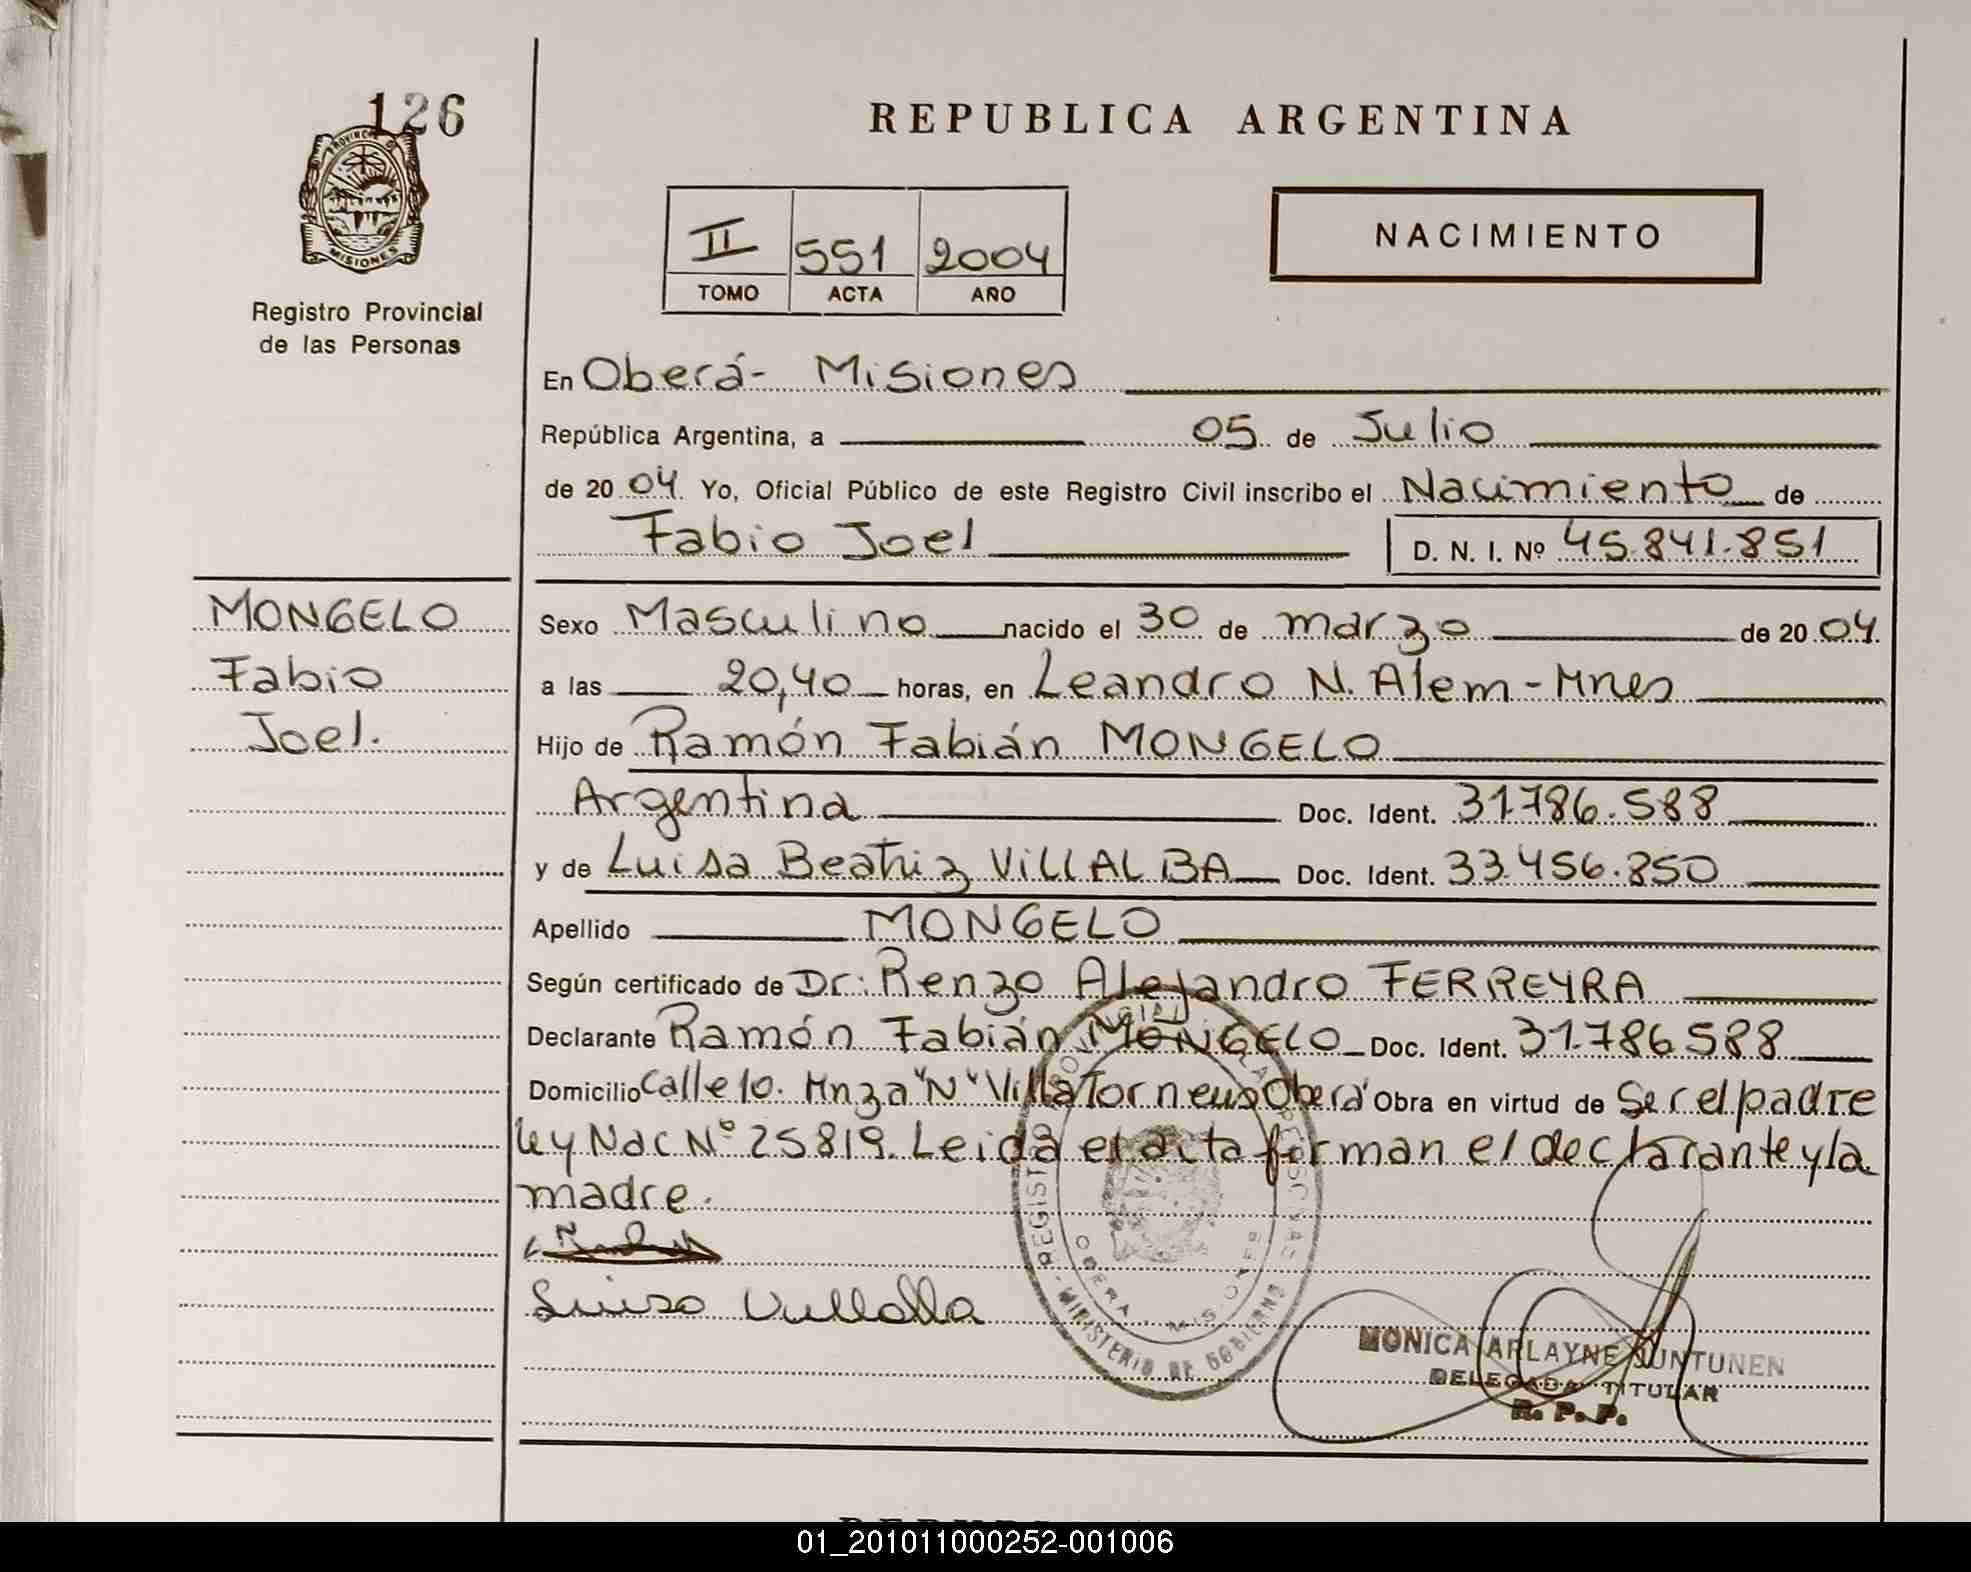 126
PROVINCIA DE
MISIONES
Registro Provincial
de las Personas
REPUBLICA ARGENTINA
II 551 2004
TOMO ACTA AÑO
NACIMIENTO
En Oberá- Misiones
República Argentina, a 05 de Julio
de 20 04. Yo, Oficial Público de este Registro Civil inscribo el Nacimiento de
Fabio Joel D. N. I. Nº 45.841.851
MONGELO
Fabio
Joel.
Sexo Masculino nacido el 30 de marzo de 20 04.
a las 20,40 horas, en Leandro N. Alem - Mnes
Hijo de Ramón Fabián MONGELO
Argentina Doc. Ident. 31.786.588
y de Luisa Beatriz VILLALBA Doc. Ident. 33.456.850
Apellido MONGELO
Según certificado de Dr: Renzo Alejandro FERREYRA
Declarante Ramón Fabián MONGELO Doc. Ident. 31.786588
Domicilio Calle 10. Mnza "N" Villa Torneus Oberá Obra en virtud de Ser el padre
Ley Nac Nº 25819. Leida el acta firman el declarante y la
madre.
Luisa Villalba
REGISTRO PROVINCIAL DE LAS PERSONAS
OBERA - MISIONES
- MINISTERIO DE GOBIERNO
MONICA ARLAYNE JUNTUNEN
DELEGADA TITULAR
R. P. P.
01_201011000252-001006